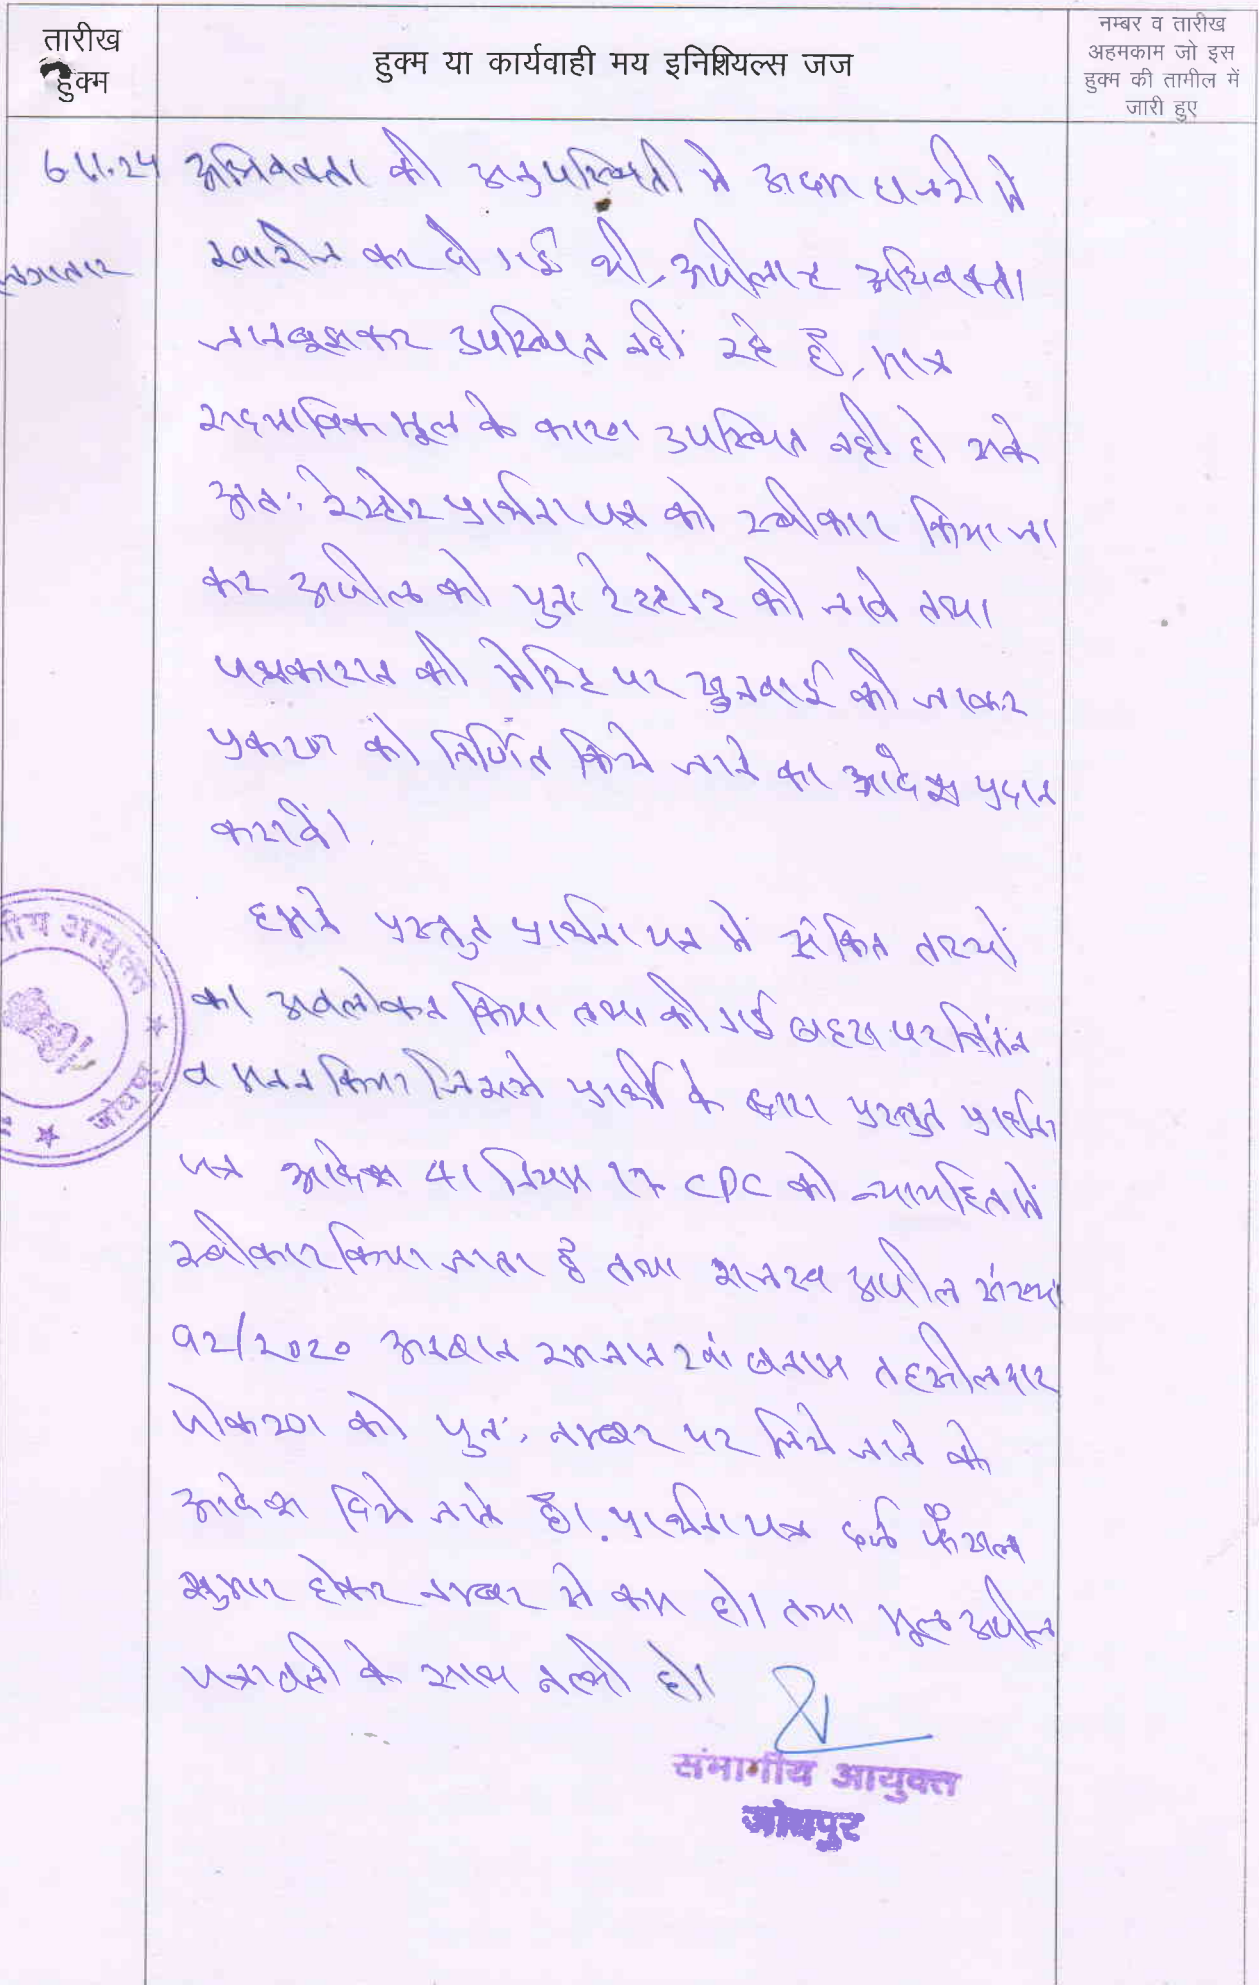 तारीख
हुक्म
हुक्म या कार्यवाही मय इनिशियल्स जज
नम्बर व तारीख
अहमकाम जो इस
हुक्म की तामील में
जारी हुए
6.11.24 अभिवक्ता की अनुपस्थिती मे अदम हाजरी में
लगातार
खारीज कर दी गई थी, अपीलांट अधिवक्ता
जानबूझकर उपस्थित नहीं रहे है, मात्र
सदभाविक भूल के कारण उपस्थित नही हो सके
अतः रेस्टोर प्रार्थना पत्र को स्वीकार किया जा
कर अपील को पुनः रेस्टोर की जावे तथा
पक्षकारान की मेरिट पर सुनवाई की जाकर
प्रकरण को निर्णित किये जाने का आदेश प्रदान
करावें।
हमने प्रस्तुत प्रार्थना पत्र मे अंकित तथ्यों
का अवलोकन किया तथा की गई बहस पर चिंतन
व मनन किया जिससे प्रार्थी के द्वारा प्रस्तुत प्रार्थना
पत्र आदेश 41 नियम 19 CPC को न्यायहित में
स्वीकार किया जाता है तथा राजस्व अपील संख्या
92/2020 अनवान रमजान खां बनाम तहसीलदार
पोकरण को पुनः नम्बर पर लिये जाने के
आदेश दिये जाते है। प्रार्थना पत्र दर्ज फैसल
शुमार होकर नम्बर से कम हो। तथा मूल अपील
पत्रावली के साथ नत्थी हो।
संभागीय आयुक्त
जोधपुर
आयुक्त
जोधपुर